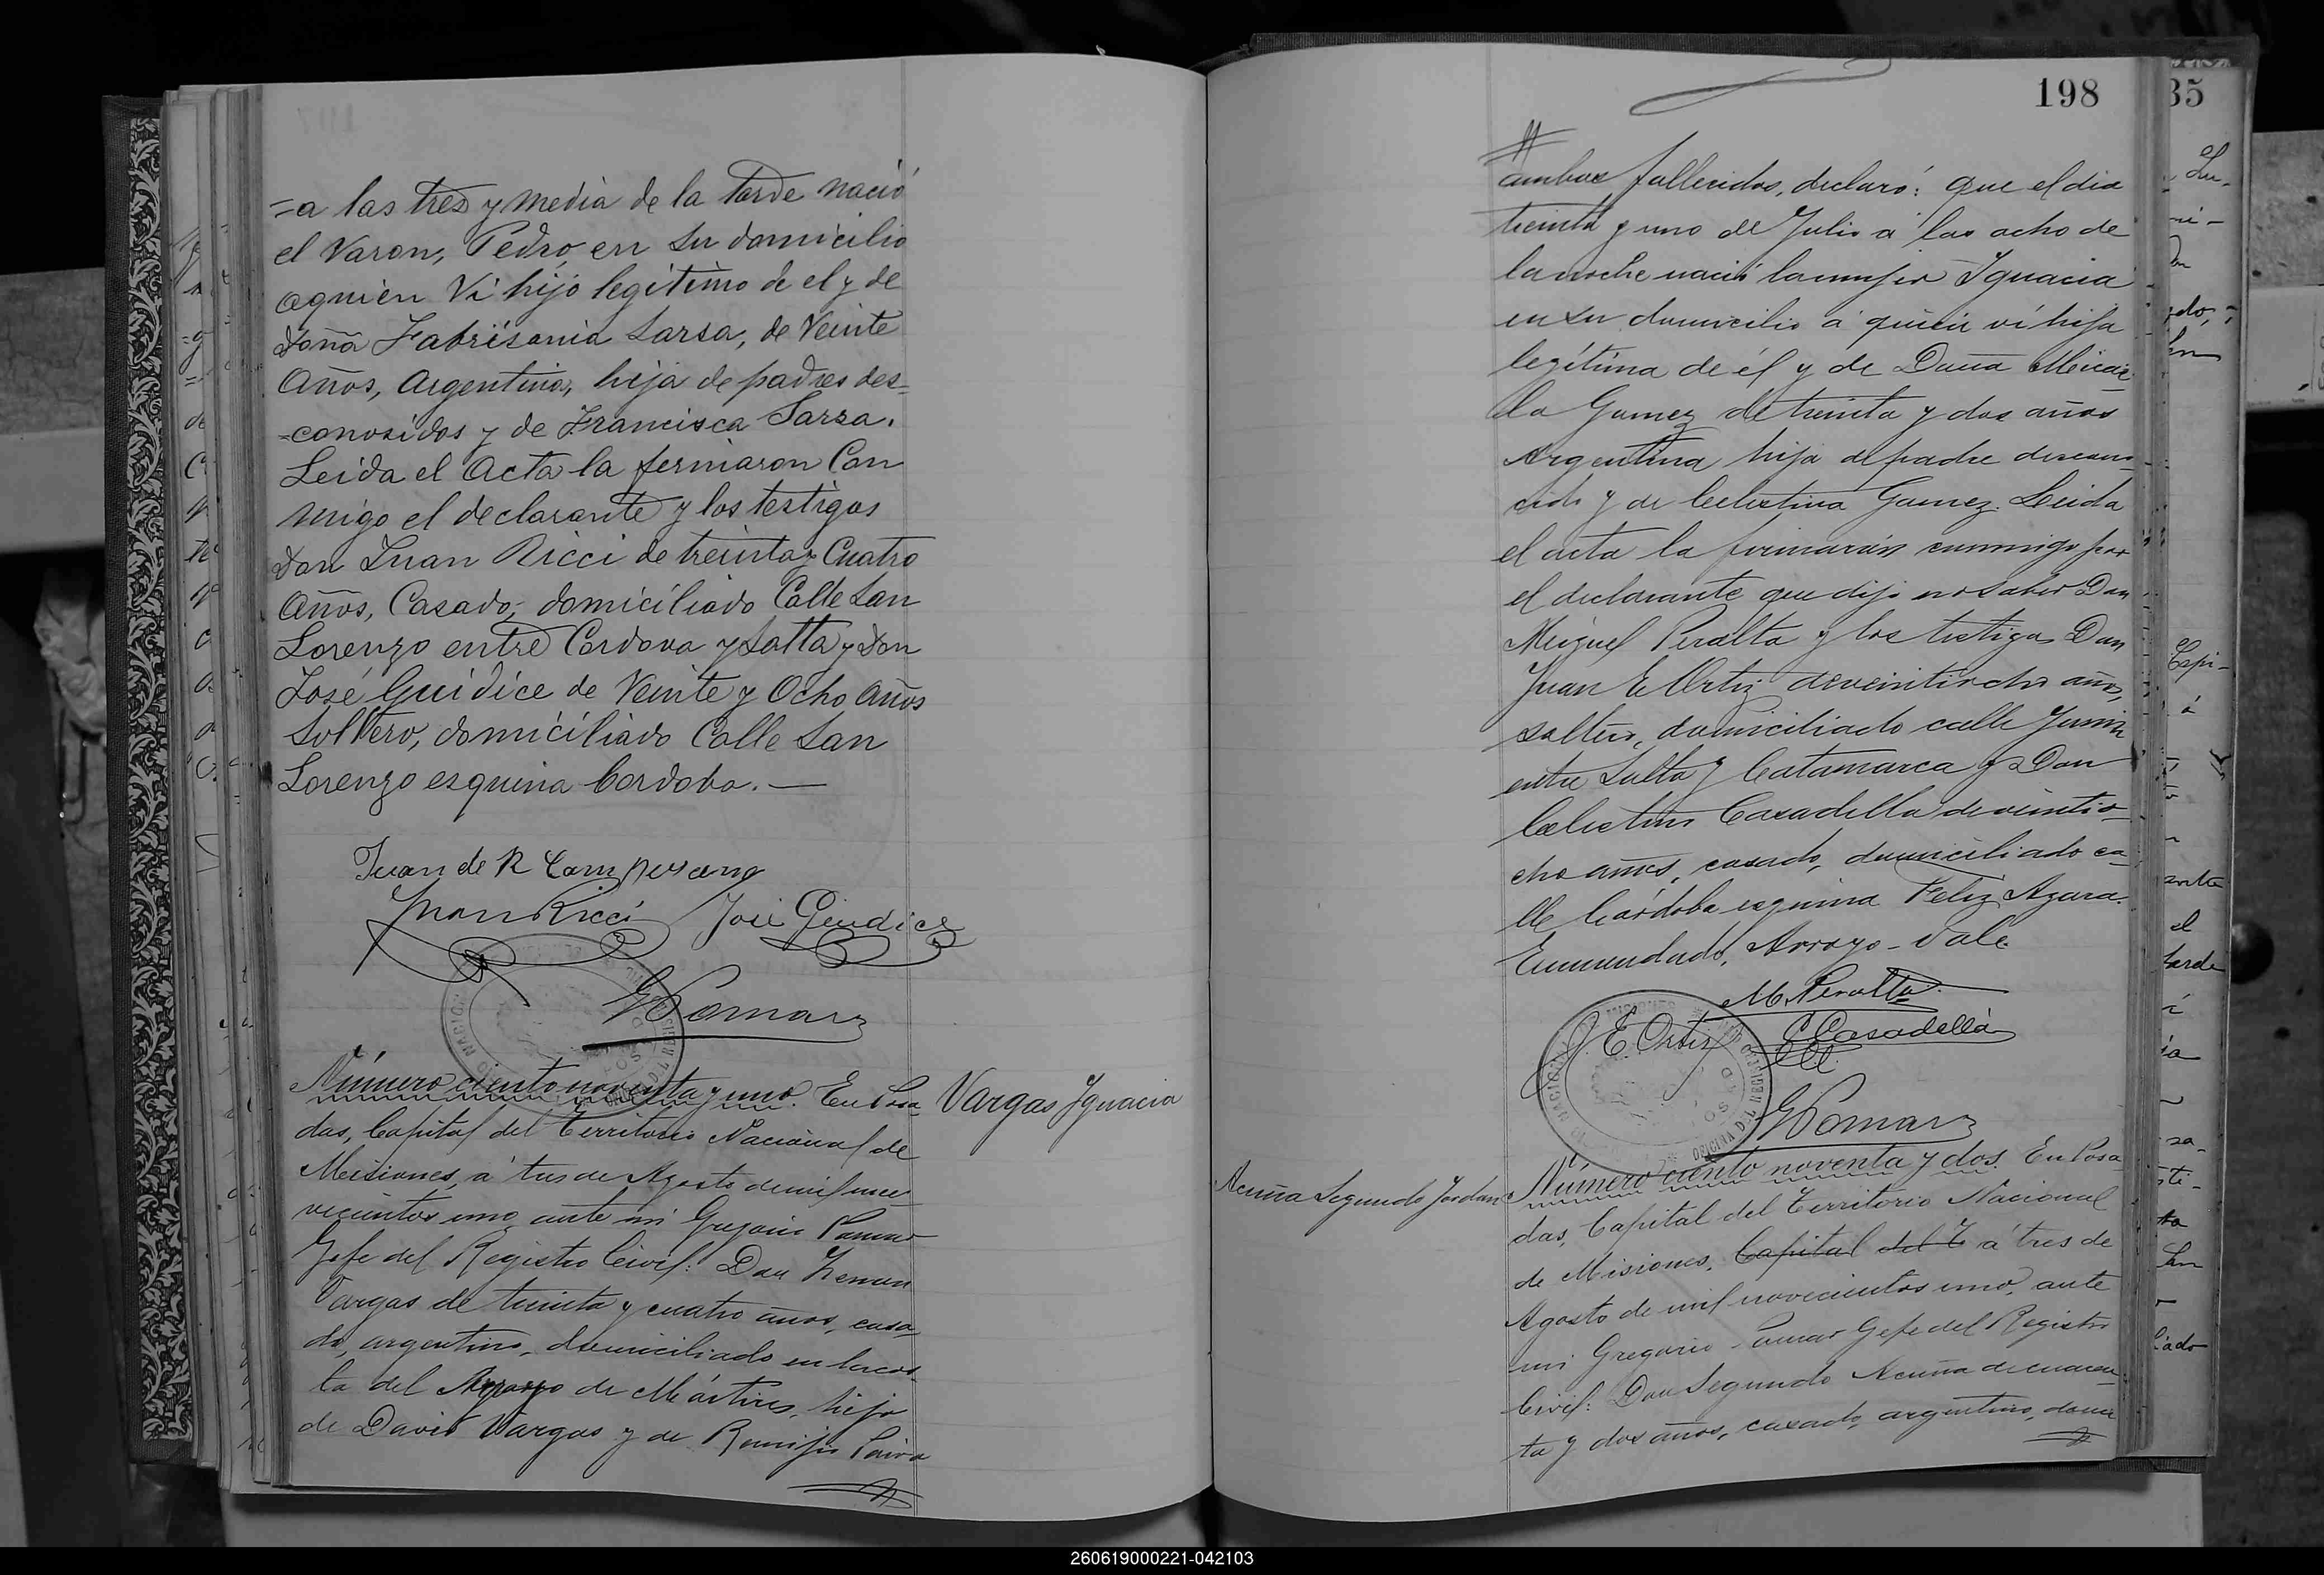 =a las tres y media de la tarde nació
el Varon, Pedro en su domicilio
aquien Vi hijo legitimo de el y de
doña Fabrisania Sarsa, de Veinte
Años, Argentina, hija de padres des=
=conosidos y de Francisca Sarsa.
Leida el Acta la fermaron Con
migo el declarante y los testigos
don Juan Ricci de treinta y Cuatro
Años, Casado, domiciliado Calle San
Lorenzo entre Cordova y Salta y Don
José Guidice de Veinte y Ocho Años
Soltero, domiciliado Calle San
Lorenzo esquina Cordoba.—
Juan de R
Juan Ricci José Giudice
G Pomar
Número ciento noventa y uno. En Posa
Vargas Ignacia
das, Capital del Territorio Nacional de
Misiones, a tres de Agosto de mil nove
vecientos uno, ante mi Gregorio Pomar
Gefe del Registro Civil: Don Zenon
Vargas de treinta y cuatro años, casa
do, argentino, domiciliado en la cos
ta del Arroyo de Mártires, hijo
de David Vargas y de Paiva
198
ambos fallecidos, declaró: que el dia
treinta y uno de Julio á las ocho de
la noche nació la mujer Ignacia
en su domicilio á quien ví hija
legítima de él y de Doña
la Gomez de treinta y dos años
Argentina hija de padre descono
cido y de Celestina Gomez. Leida
el acta la firmarón conmigo por
el declarante que dijo no saber Don
Miguel Peralta y los testigos Don
Juan E Ortiz de veintiocho años,
soltero, domiciliado calle Junin
entre Salta y Catamarca y Don
Celestino Casadella de veintio
cho años, casado, domiciliado ca
lle Córdoba esquina Feliz Azara.
Enmendado, Arroyo - Vale
M. Peralta
J. E. Ortiz C Casadella
G Pomar
Acuña Segundo Jordan
Número ciento noventa y dos. En Posa
das, Capital del Territorio Nacional
de Misiones, Capital del T á tres de
Agosto de mil novecientos uno, ante
mi Gregorio Pomar Gefe del Registro
Civil: Don Segundo Acuña de cuaren
ta y dos años, casado, argentino, domi
35
260619000221-042103